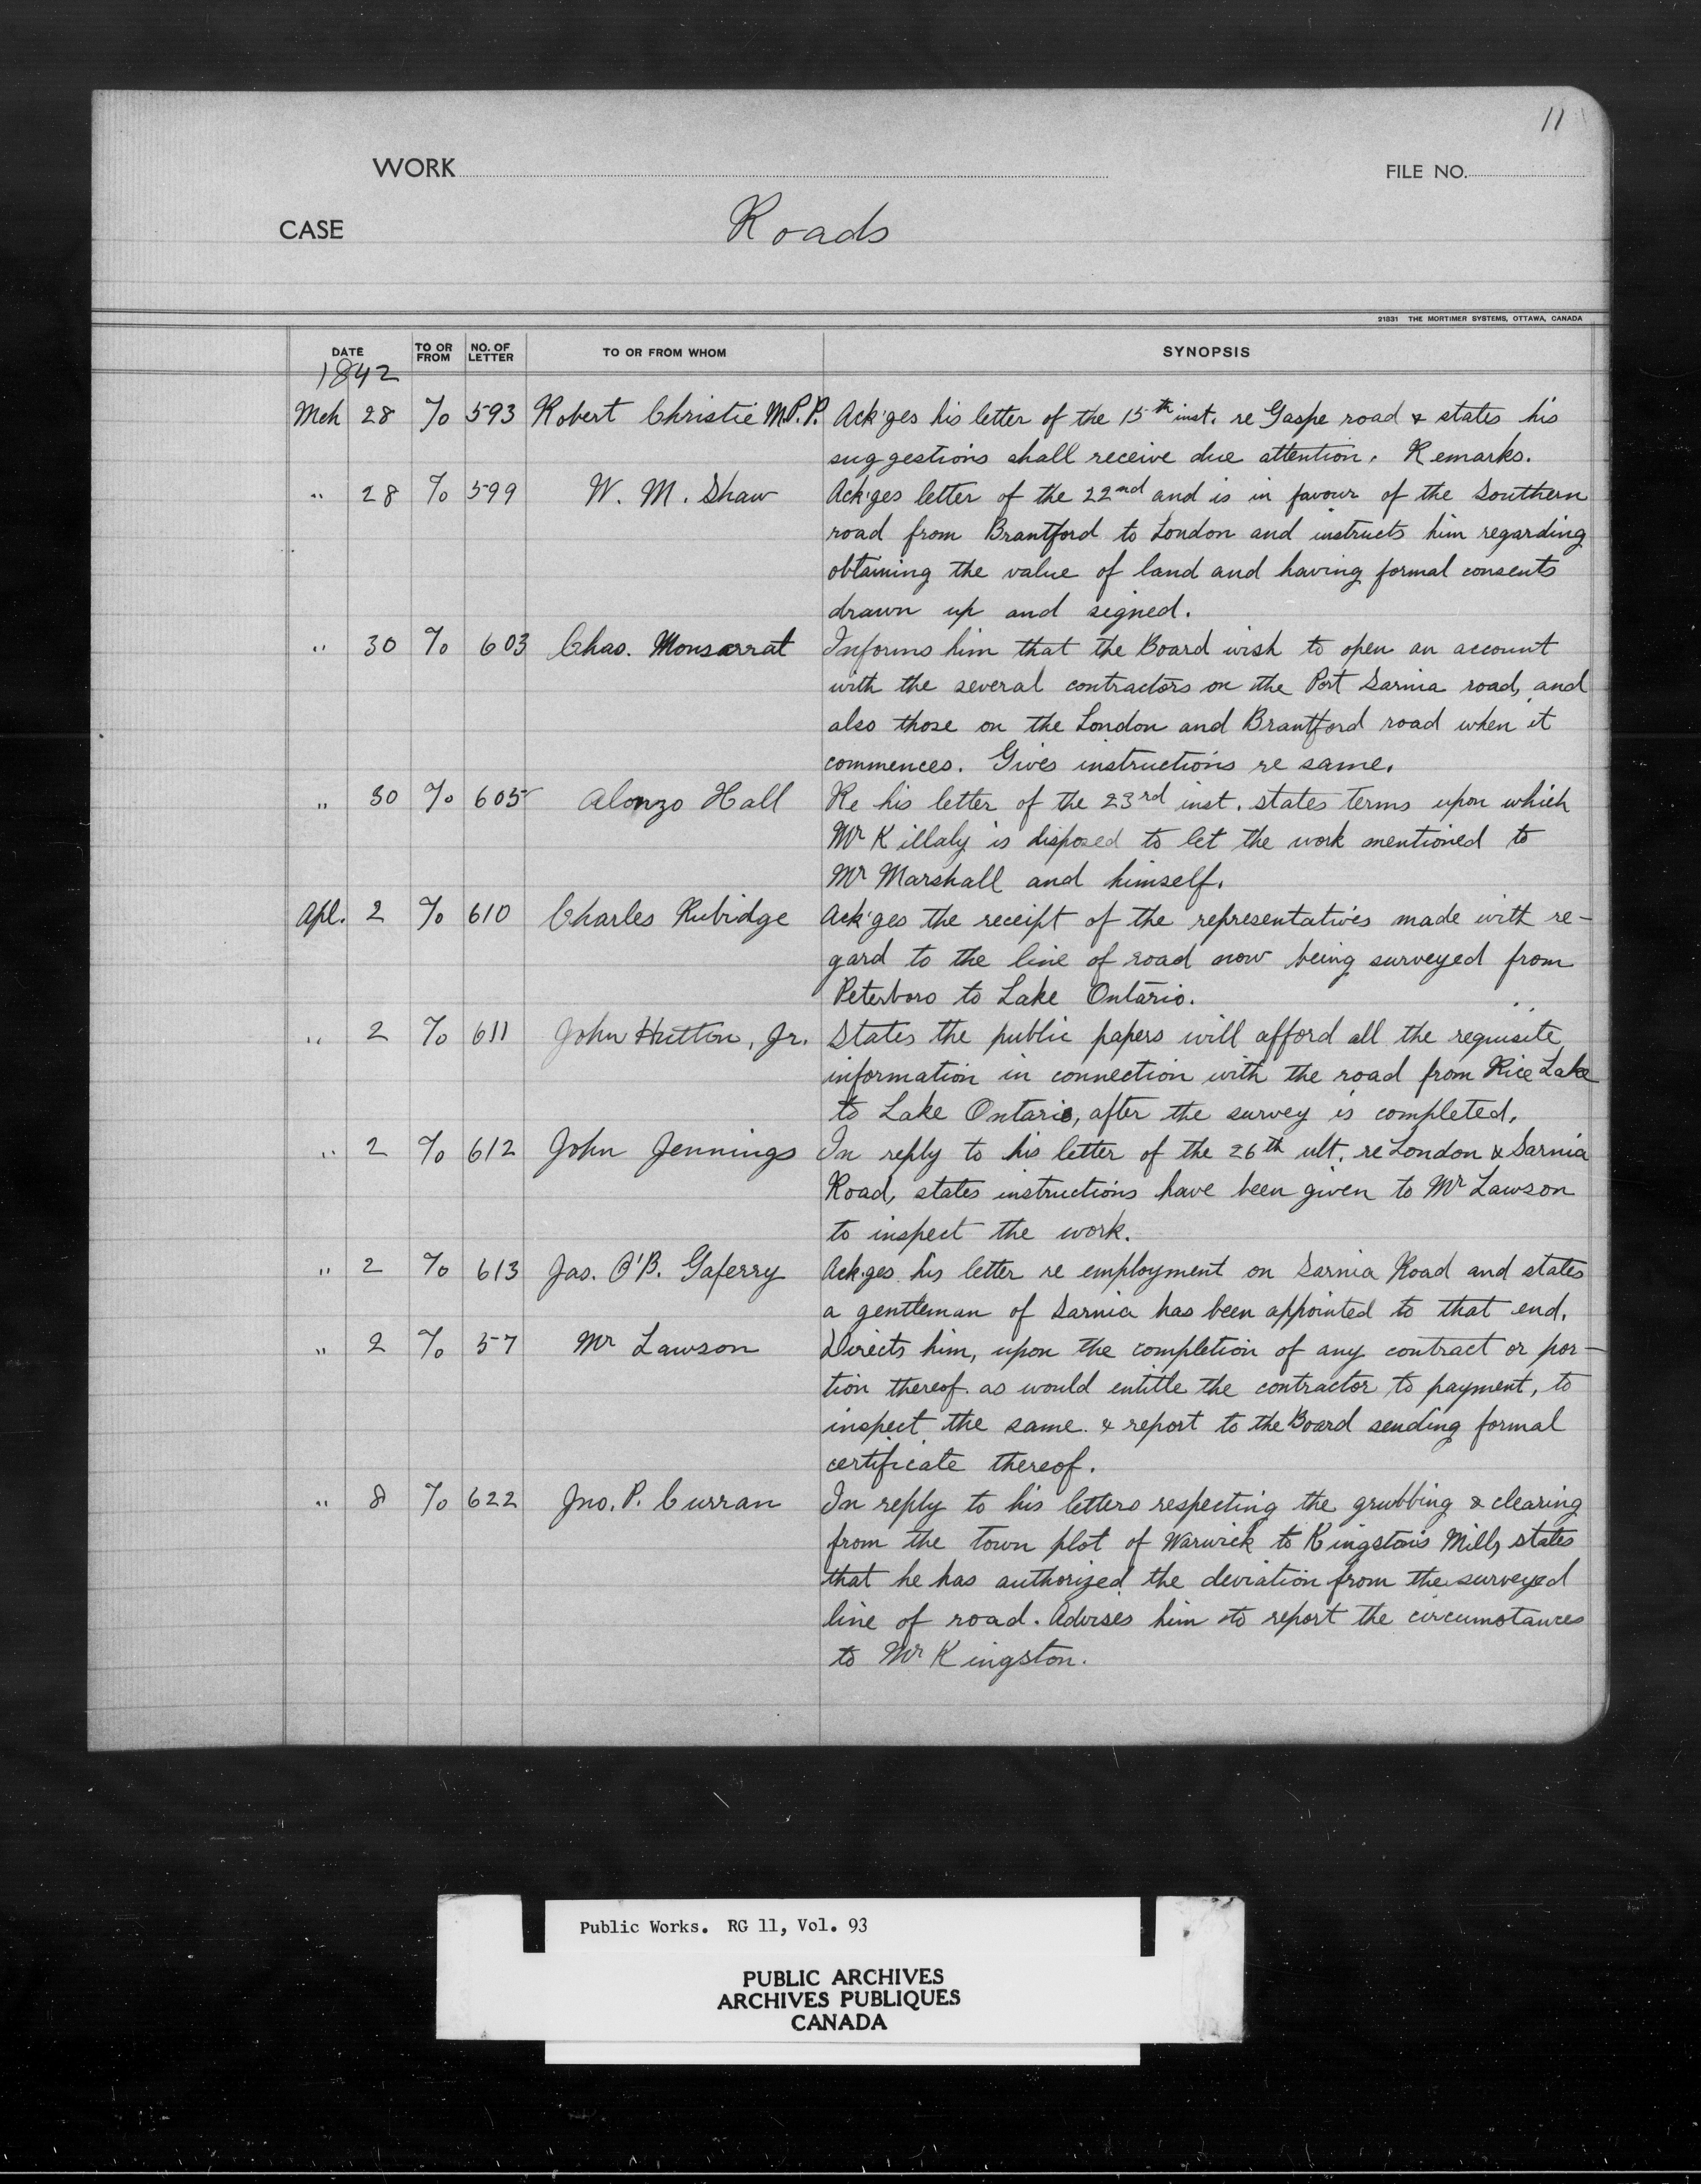 11
WORK
FILE NO.
CASE Roads
21831 THE MORTIMER SYSTEMS, OTTAWA, CANADA
DATE TO OR FROM NO. OF LETTER TO OR FROM WHOM SYNOPSIS
1842
Mch 28 T/o 593 Robert Christie M.P.P. Ack'ges his letter of the 15th inst. re Gaspe road & states his
suggestions shall receive due attention. Remarks.
" 28 T/o 599 W. M. Shaw Ack'ges letter of the 22nd and is in favour of the Southern
road from Brantford to London and instructs him regarding
obtaining the value of land and having formal consents
drawn up and signed.
" 30 T/o 603 Chas. Monsarrat Informs him that the Board wish to open an account
with the several contractors on the Port Sarnia road, and
also those on the London and Brantford road when it
commences. Gives instructions re same.
" 30 T/o 605 Alonzo Hall Re his letter of the 23rd inst. states terms upon which
Mr Killaly is disposed to let the work mentioned to
Mr Marshall and himself.
Apl. 2 T/o 610 Charles Rubidge Ack'ges the receipt of the representatives made with re-
gard to the line of road now being surveyed from
Peterboro to Lake Ontario.
" 2 T/o 611 John Hutton, Jr. States the public papers will afford all the requisite
information in connection with the road from Rice Lake
to Lake Ontario, after the survey is completed.
" 2 T/o 612 John Jennings In reply to his letter of the 26th ult. re London & Sarnia
Road, states instructions have been given to Mr Lawson
to inspect the work.
" 2 T/o 613 Jas. O'B. Gaferry Ack.ges his letter re employment on Sarnia Road and states
a gentleman of Sarnia has been appointed to that end.
" 2 T/o 57 Mr Lawson Directs him, upon the completion of any contract or por-
tion thereof as would entitle the contractor to payment, to
inspect the same & report to the Board sending formal
certificate thereof.
" 8 T/o 622 Jno. P. Curran In reply to his letters respecting the grubbing & clearing
from the town plot of Warwick to Kingston's Mills, states
that he has authorized the deviation from the surveyed
line of road. Advises him to report the circumstances
to Mr Kingston.
Public Works. RG 11, Vol. 93
PUBLIC ARCHIVES
ARCHIVES PUBLIQUES
CANADA